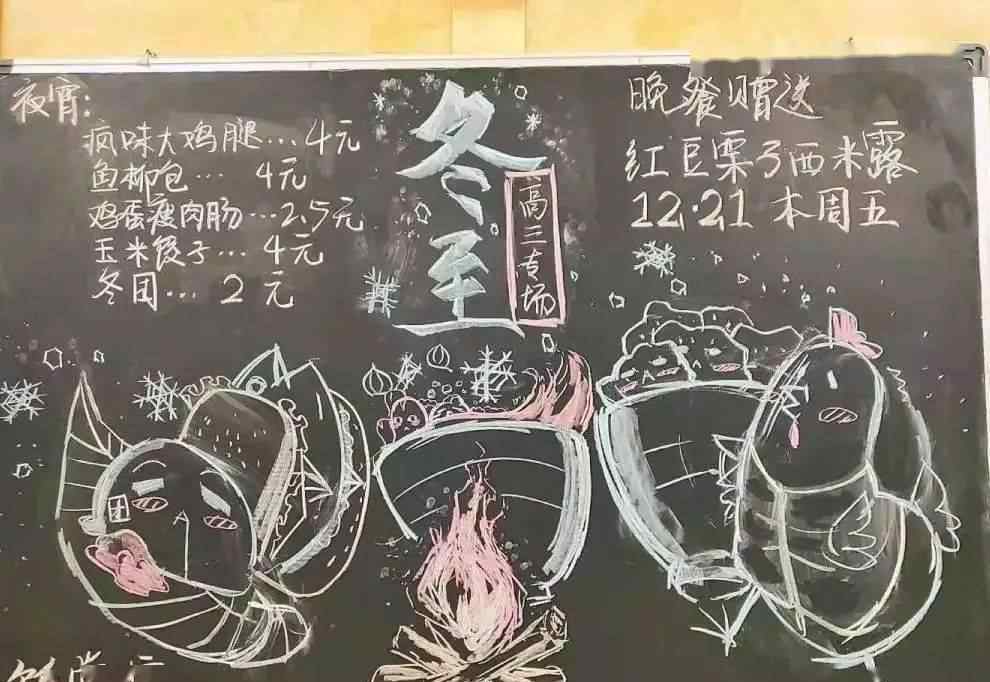 夜宵:
疯味大鸡腿...4元
鱼柳包... 4元
鸡蛋瘦肉肠...2.5元
玉米饺子... 4元
冬团... 2元
冬至
高三专场
晚餐赠送
红豆栗子西米露
12.21 本周五
团